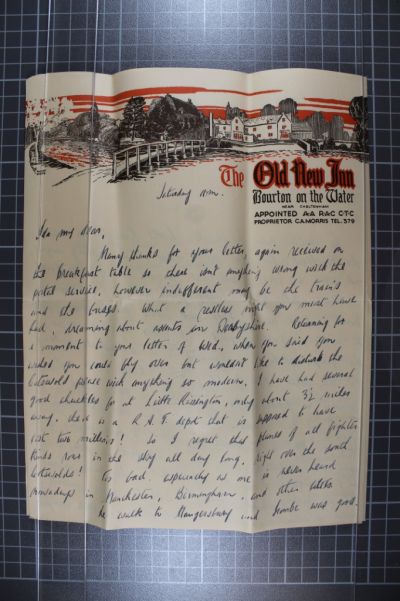 The Old New Inn
Bourton on the Water
NEAR CHELTENHAM
APPOINTED A·A R·A·C C·T·C
PROPRIETOR C.A.MORRIS TEL. 379
Saturday a.m.
my dear,
Many thanks for your letter, again received on
the breakfast table so there isn't anything wrong with the
postal service, however indifferent may be the trains
and the buses. What a restless night you must have
had, dreaming about events in Derbyshire. Returning for
a moment to your letter of Wed, when you said you
wished you could fly over but wouldn't like to disturb the
Cotswold peace with anything so modern. I have had several
good chuckles for at Little Rissington, only about 3½ miles
away, there is a R.A.F. depot that is supposed to have
cost two millions! So I regret that planes of all fighter
kinds roar in the sky all day long, right over the south
Cotswolds! Too bad, especially as one is never heard
nowadays in Manchester, Birmingham, and other cities.
The walk to Maugersbury and was good.